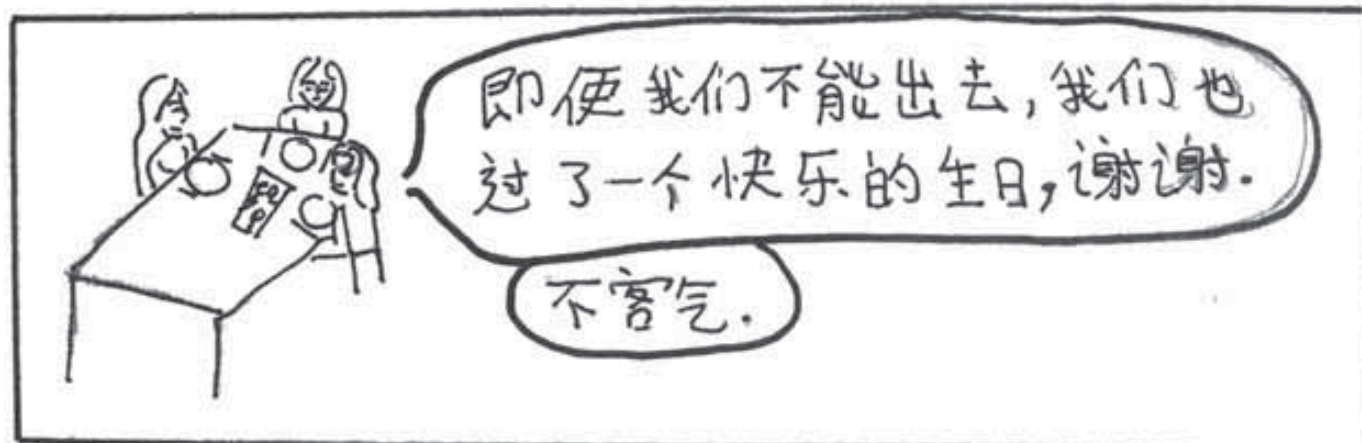 即便我们不能出去,我们也
过了一个快乐的生日,谢谢.
不客气.